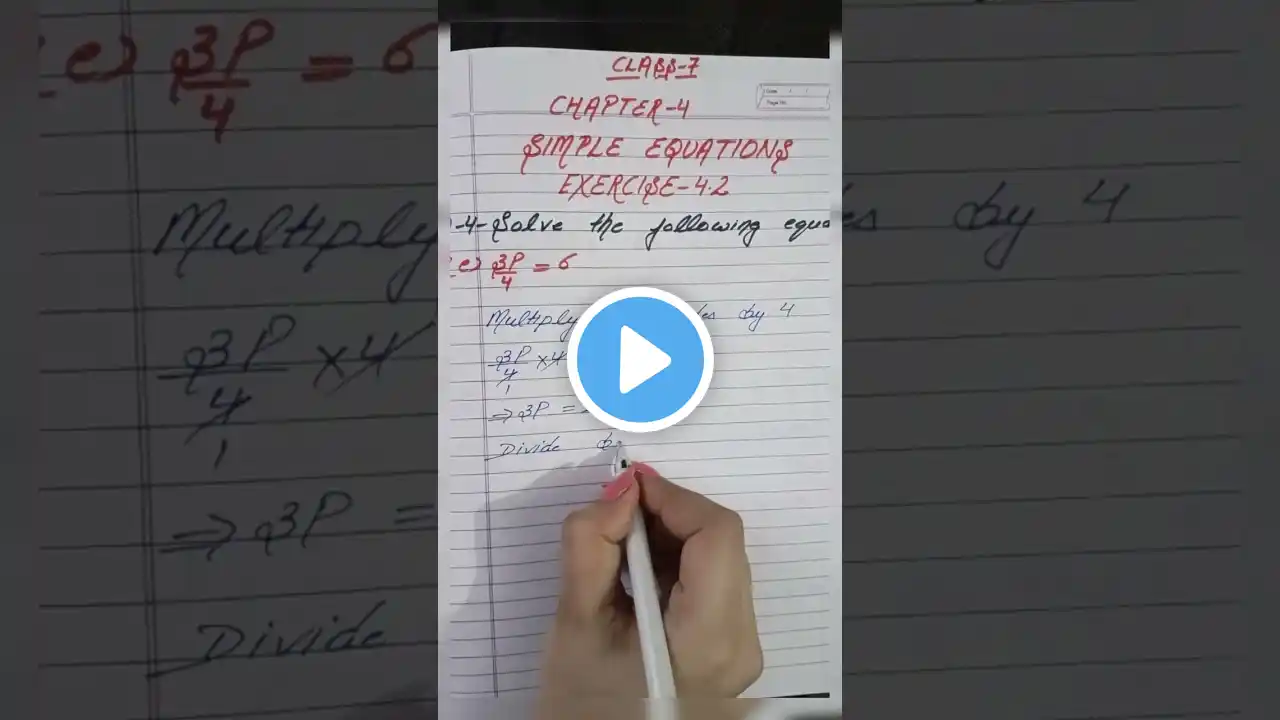 CLASS-7
CHAPTER-4
SIMPLE EQUATIONS
EXERCISE-4.2
-4-Solve the following equa
e) 3P/4 = 6
Multiply by 4
3P/4 × 4
1
⇒ 3P =
Divide